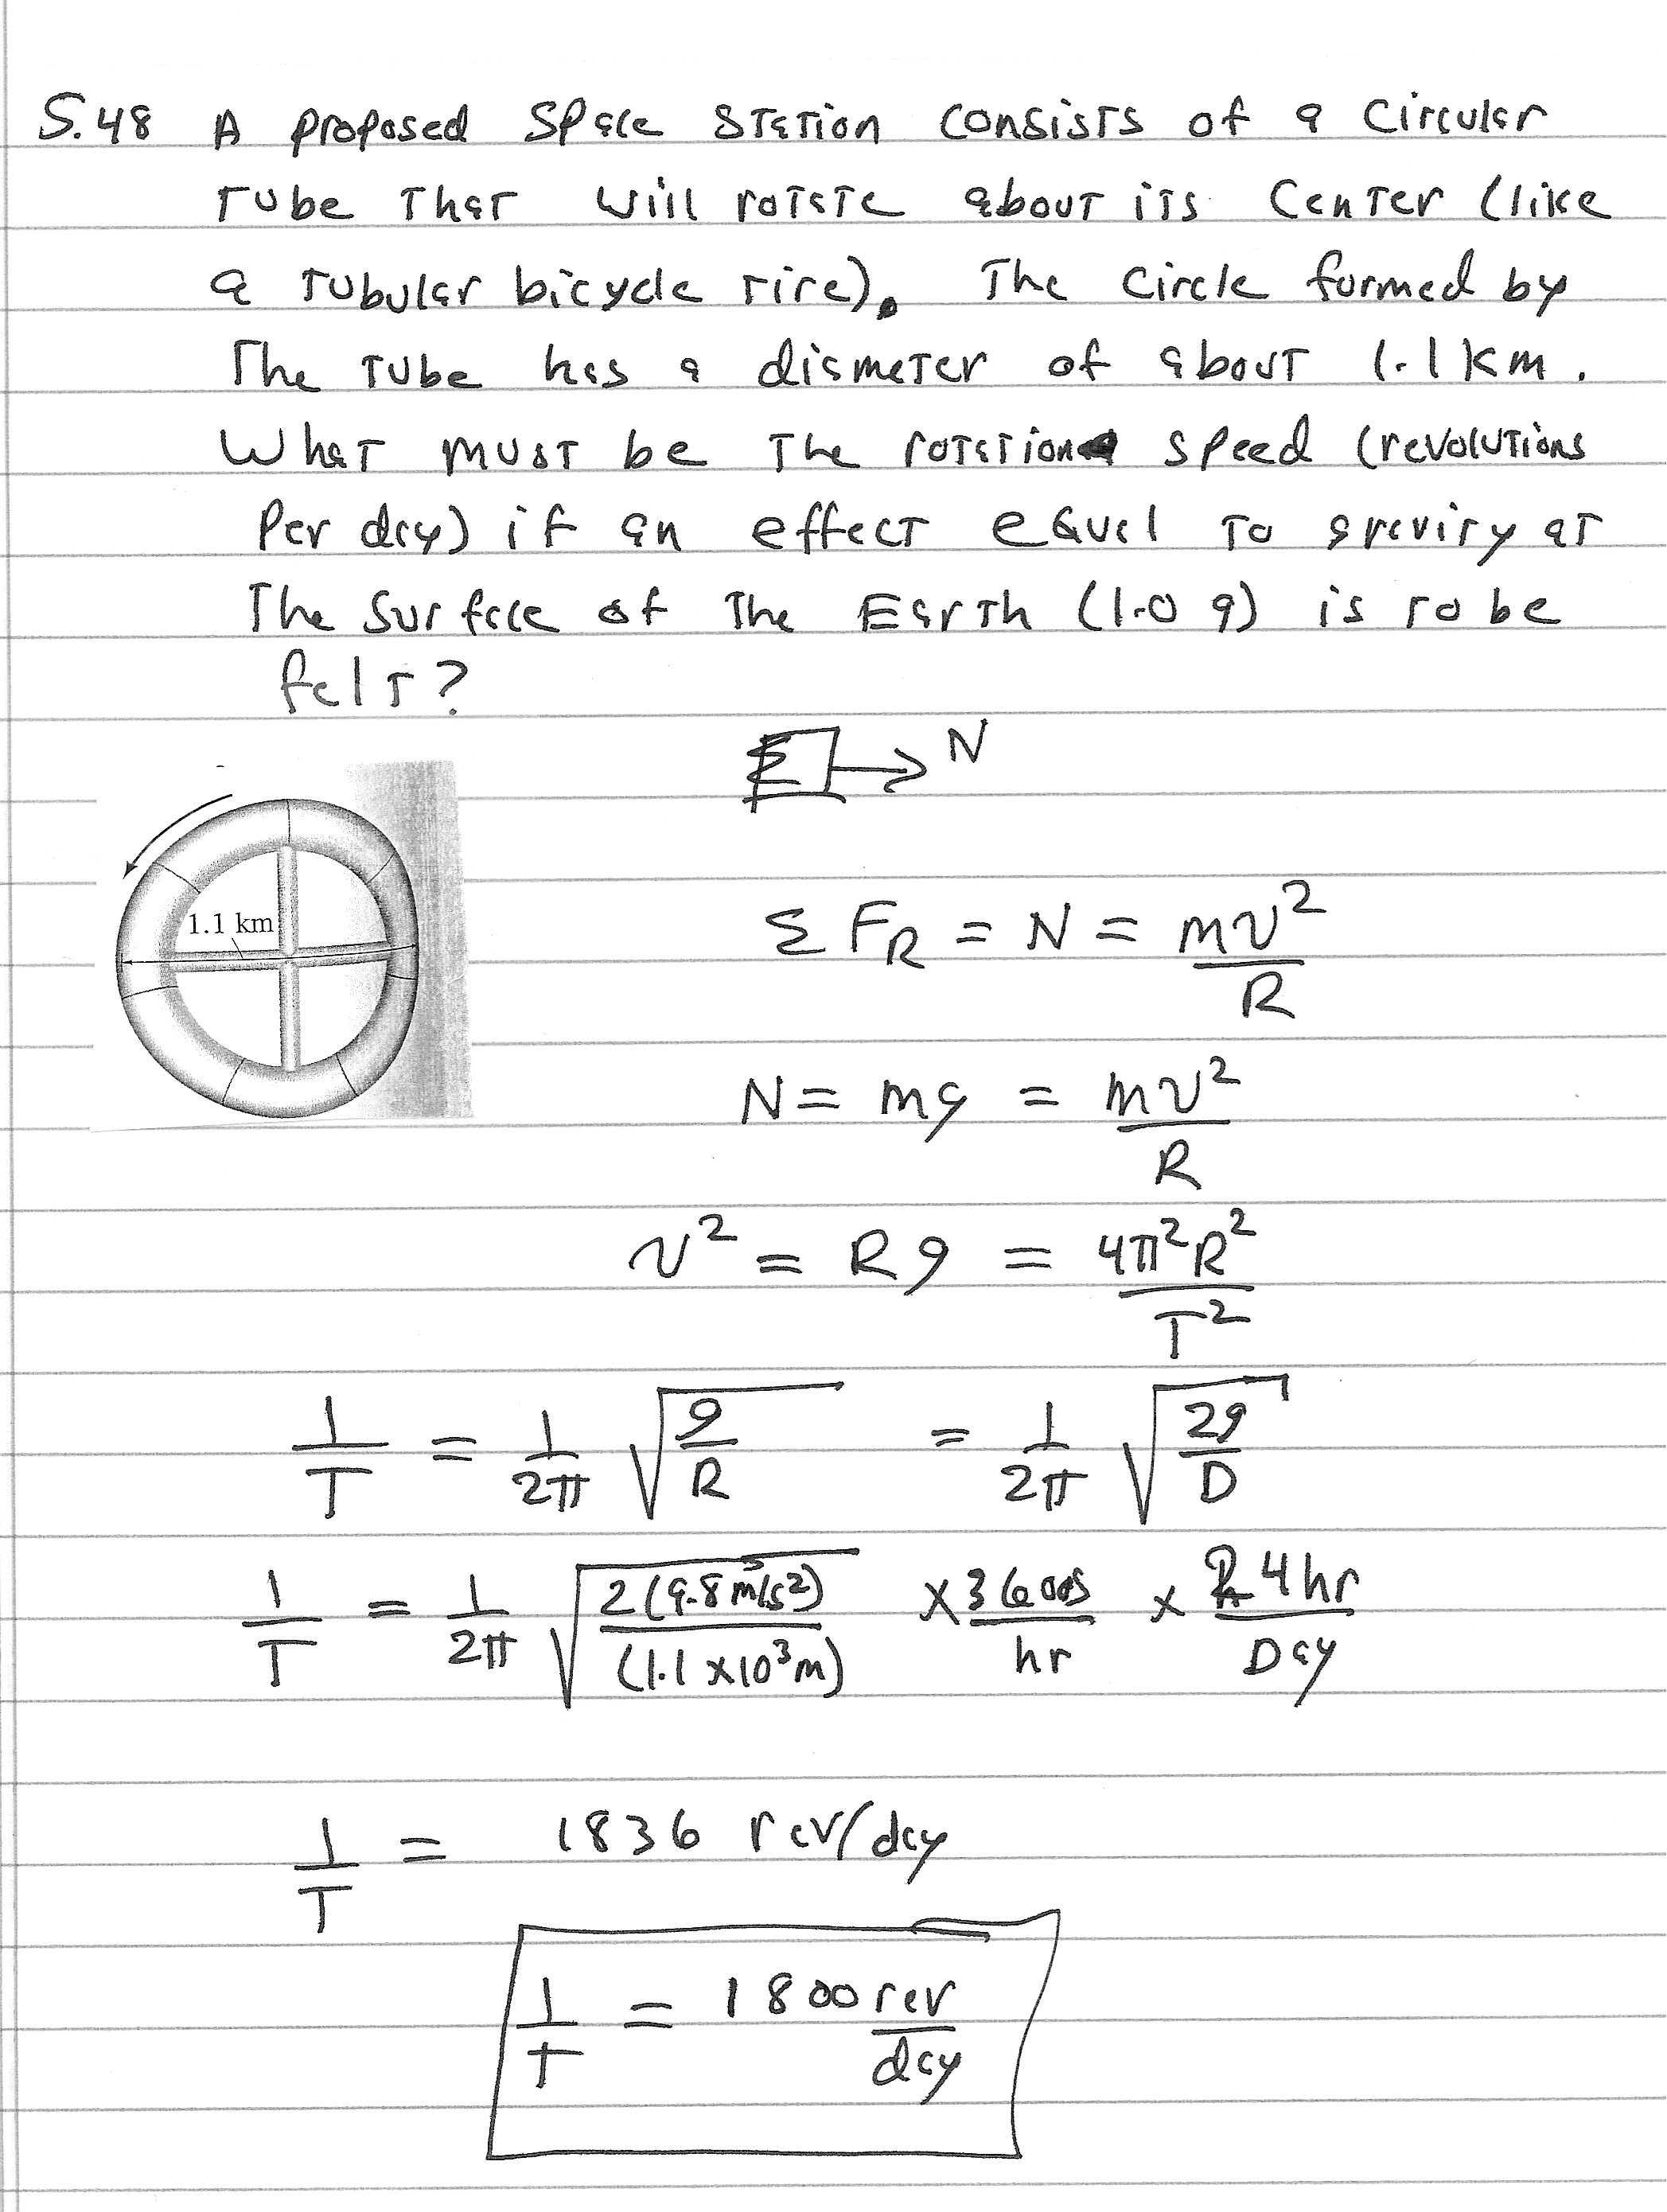 5.48 A proposed space station consists of a circular
tube that will rotate about its center (like
a tubular bicycle tire). The circle formed by
The tube has a diameter of about 1.1 km.
What must be the rotation speed (revolutions
per day) if an effect equal to gravity at
The surface of the Earth (1.0 g) is to be
felt?
N
1.1 km
Σ F_R = N = mv²/R
N = mg = mv²/R
v² = Rg = 4π²R²/T²
1/T = 1/2π √(g/R) = 1/2π √(2g/D)
1/T = 1/2π √(2(9.8 m/s²)/(1.1 x 10³ m)) x 3600s/hr x 24hr/Day
1/T = 1836 rev/day
1/T = 1800 rev/day